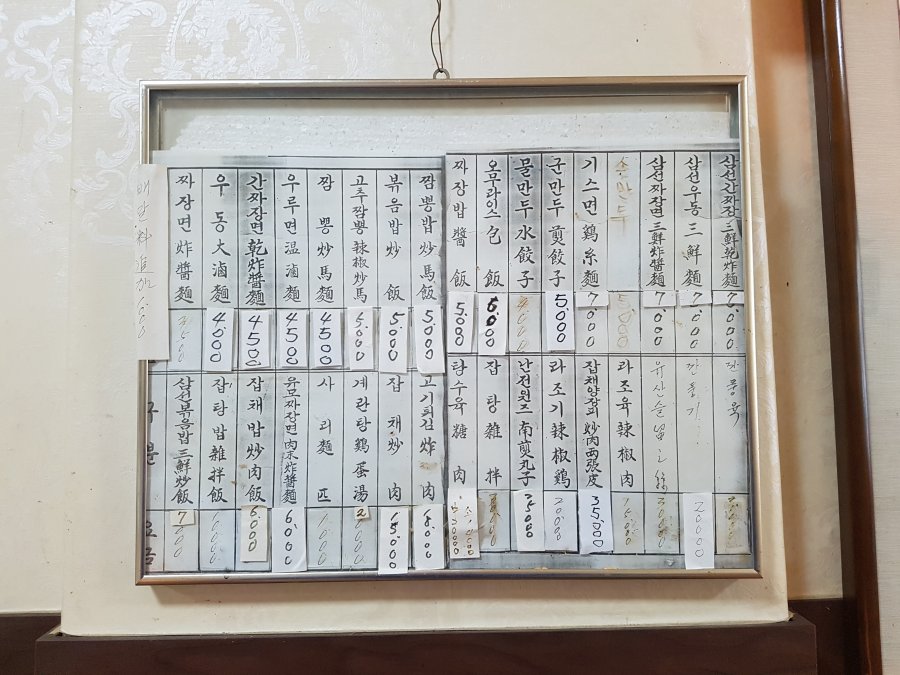 짜장면 炸醬麵
우동 大滷麵 4,000
간짜장면 乾炸醬麵 4500
우루면 温滷麵 4500
짬뽕 炒馬麵 4500
고추짬뽕 辣椒炒馬 5,000
볶음밥 炒飯 5,000
짬뽕밥 炒馬飯 5,000
짜장밥 醬飯 5,000
오무라이스 包飯 6,000
물만두 水餃子
군만두 煎餃子 5,000
기스면 鷄糸麵 7,000
삼선짜장면 三鮮炸醬麵 7,000
삼선우동 三鮮麵 7,000
삼선간짜장 三鮮乾炸麵 7,000
구분
요금
삼선볶음밥 三鮮炒飯
잡탕밥 雜拌飯
잡채밥 炒肉飯 6000
유모짜장면 肉末炸醬麵 6,000
사리麵
계란탕 鷄蛋湯
잡채 炒肉 15,000
고기튀김 炸肉 18,000
탕수육 糖肉
잡탕 雜拌
난전완즈 南煎丸子
라조기 辣椒鷄
잡채양장피 炒肉両張皮 35,000
라조육 辣椒肉
유산슬
깐풍기 20000
깐풍육